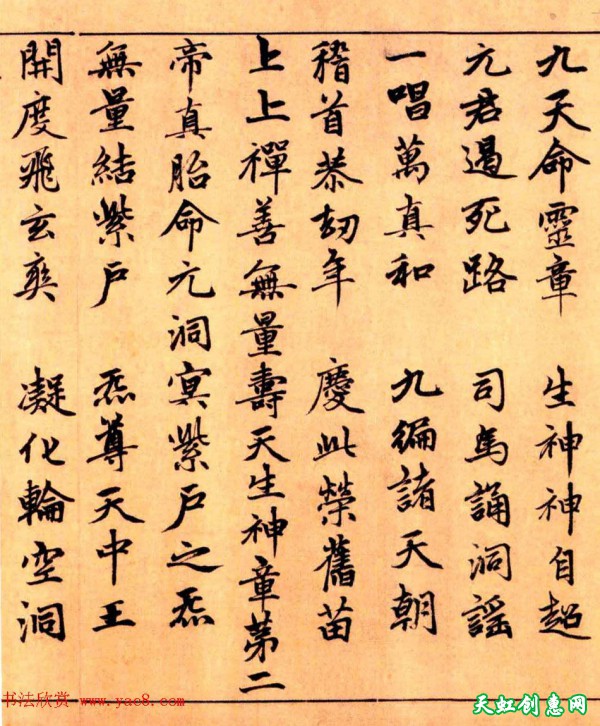 九天命靈章　生神神自超
元君遏死路　司馬誦洞謠
一唱萬真和　九編諸天朝
稽首恭劫年　慶此榮舊苗
上上禪善無量壽天生神章第二
帝真胎命元洞㝠紫戶之炁
無量結紫戶　炁尊天中王
開度飛玄爽　凝化輪空洞
书法欣赏 www.yac8.com
天虹创惠网